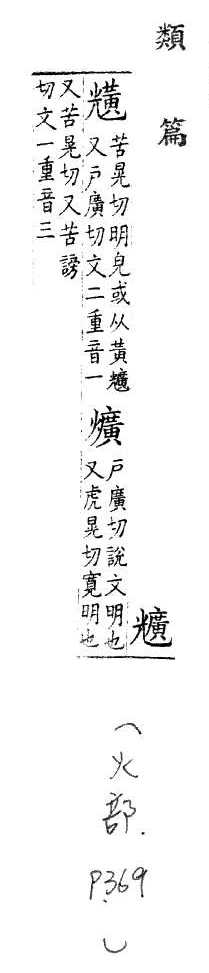 類篇
苦晃切明皃或从黃
又戶廣切文二重音一
爌
戶廣切說文明也
又虎晃切寬明也
又苦晃切又苦謗
切文一重音三
(火部. P.369)